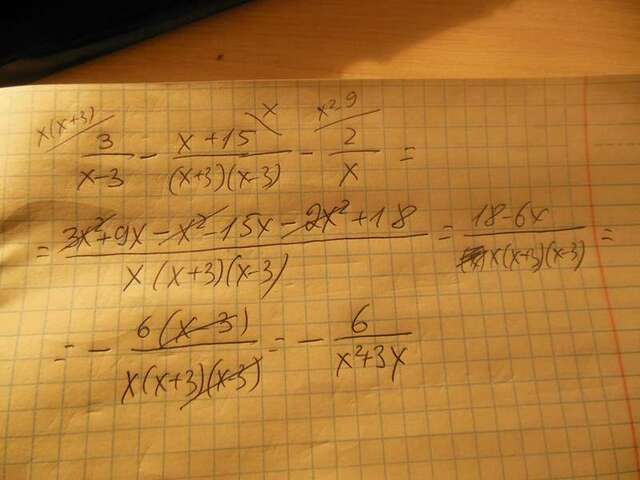 x(x+3) x x²-9
3/(x-3) - (x+15)/((x+3)(x-3)) - 2/x =
= (3x²+9x-x²-15x-2x²+18)/(x(x+3)(x-3)) = (18-6x)/(x(x+3)(x-3)) =
= - 6(x-3)/(x(x+3)(x-3)) = - 6/(x²+3x)